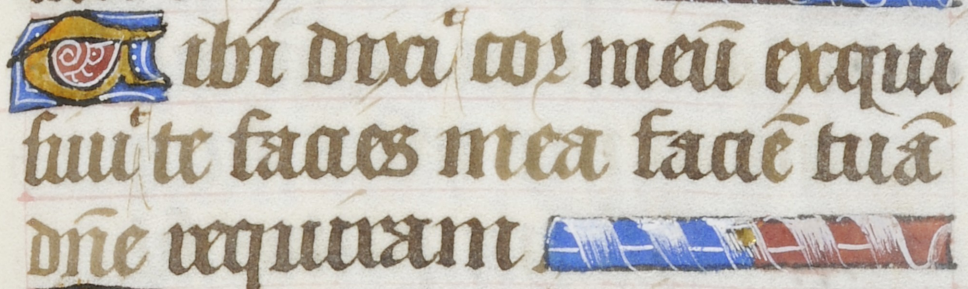 Tibi dixi cor meū exqui
siuit te facies mea faciē tuā
dn̄e requiram